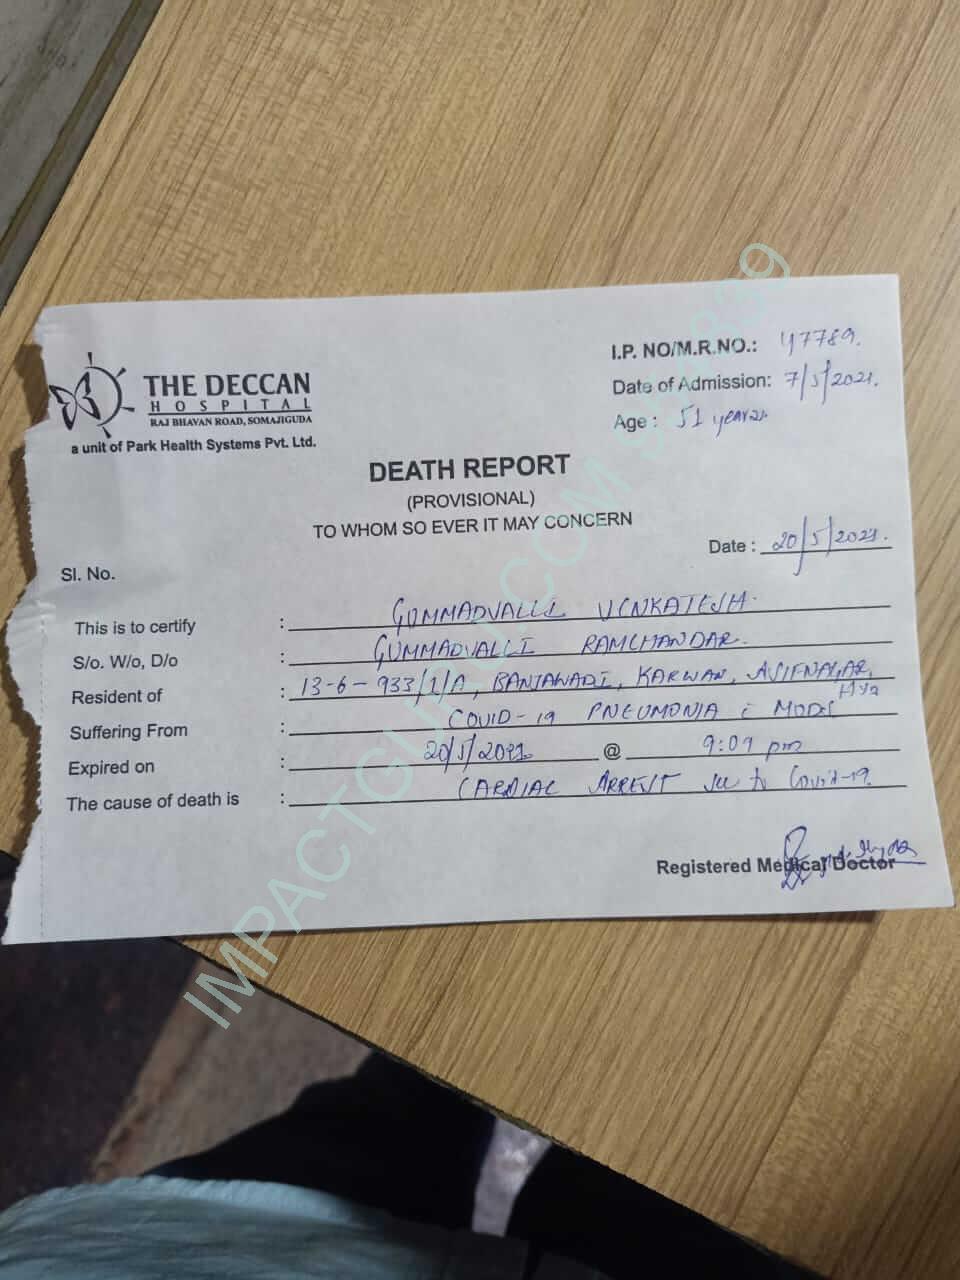 THE DECCAN
HOSPITAL
RAJ BHAVAN ROAD, SOMAJIGUDA
a unit of Park Health Systems Pvt. Ltd.
I.P. NO/M.R.NO.: 47789.
Date of Admission: 7/5/2021.
Age : 51 years
DEATH REPORT
(PROVISIONAL)
TO WHOM SO EVER IT MAY CONCERN
Date : 20/5/2021.
Sl. No.
This is to certify : GUMMADVALLI VENKATESH.
S/o. W/o, D/o : GUMMADVALLI RAMCHANDAR.
Resident of : 13-6-933/1/A, BANJAWADI, KARWAN, ASIFNAGAR, Hyd
Suffering From : COVID-19 PNEUMONIA c MODS
Expired on : 20/5/2021 @ 9:09 pm
The cause of death is : CARDIAC ARREST to Covid-19.
Registered Medical Doctor
IMPACTGURU.COM